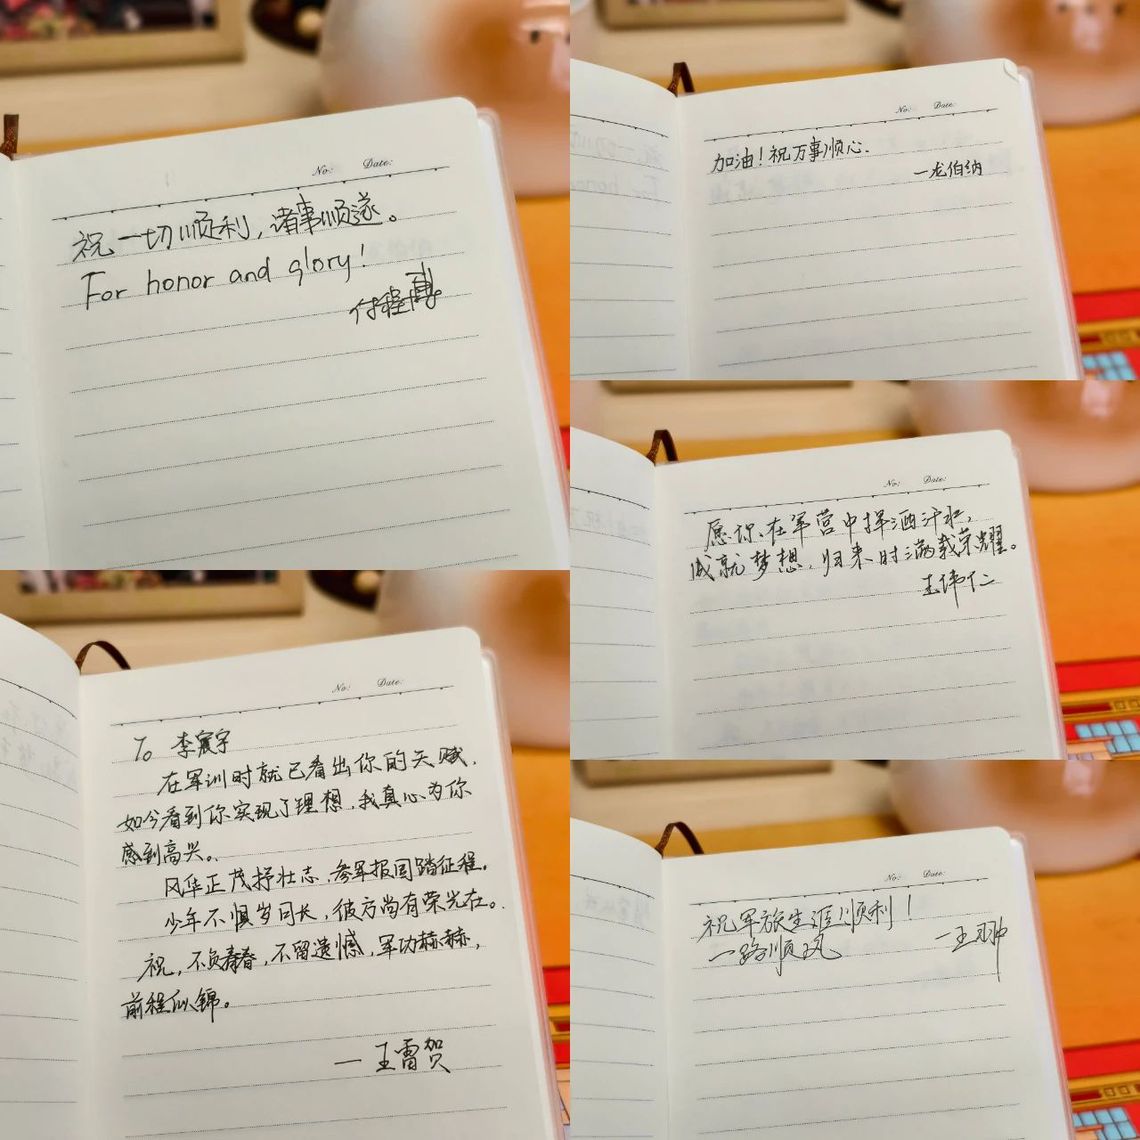 No: Date:
祝一切顺利，诸事顺遂。
For honor and glory!
付程
No: Date:
加油！祝万事顺心.
—龙伯纳
No: Date:
愿你在军营中挥洒汗水，
成就梦想，归来时满载荣耀。
王伟仁
No: Date:
To 李寰宇
在军训时就已看出你的天赋，
如今看到你实现了理想，我真心为你
感到高兴。
风华正茂抒壮志，参军报国踏征程。
少年不惧岁月长，彼方尚有荣光在。
祝，不负青春，不留遗憾，军功赫赫，
前程似锦。
—王雷贺
No: Date:
祝军旅生涯顺利！
一路顺风 —王翀